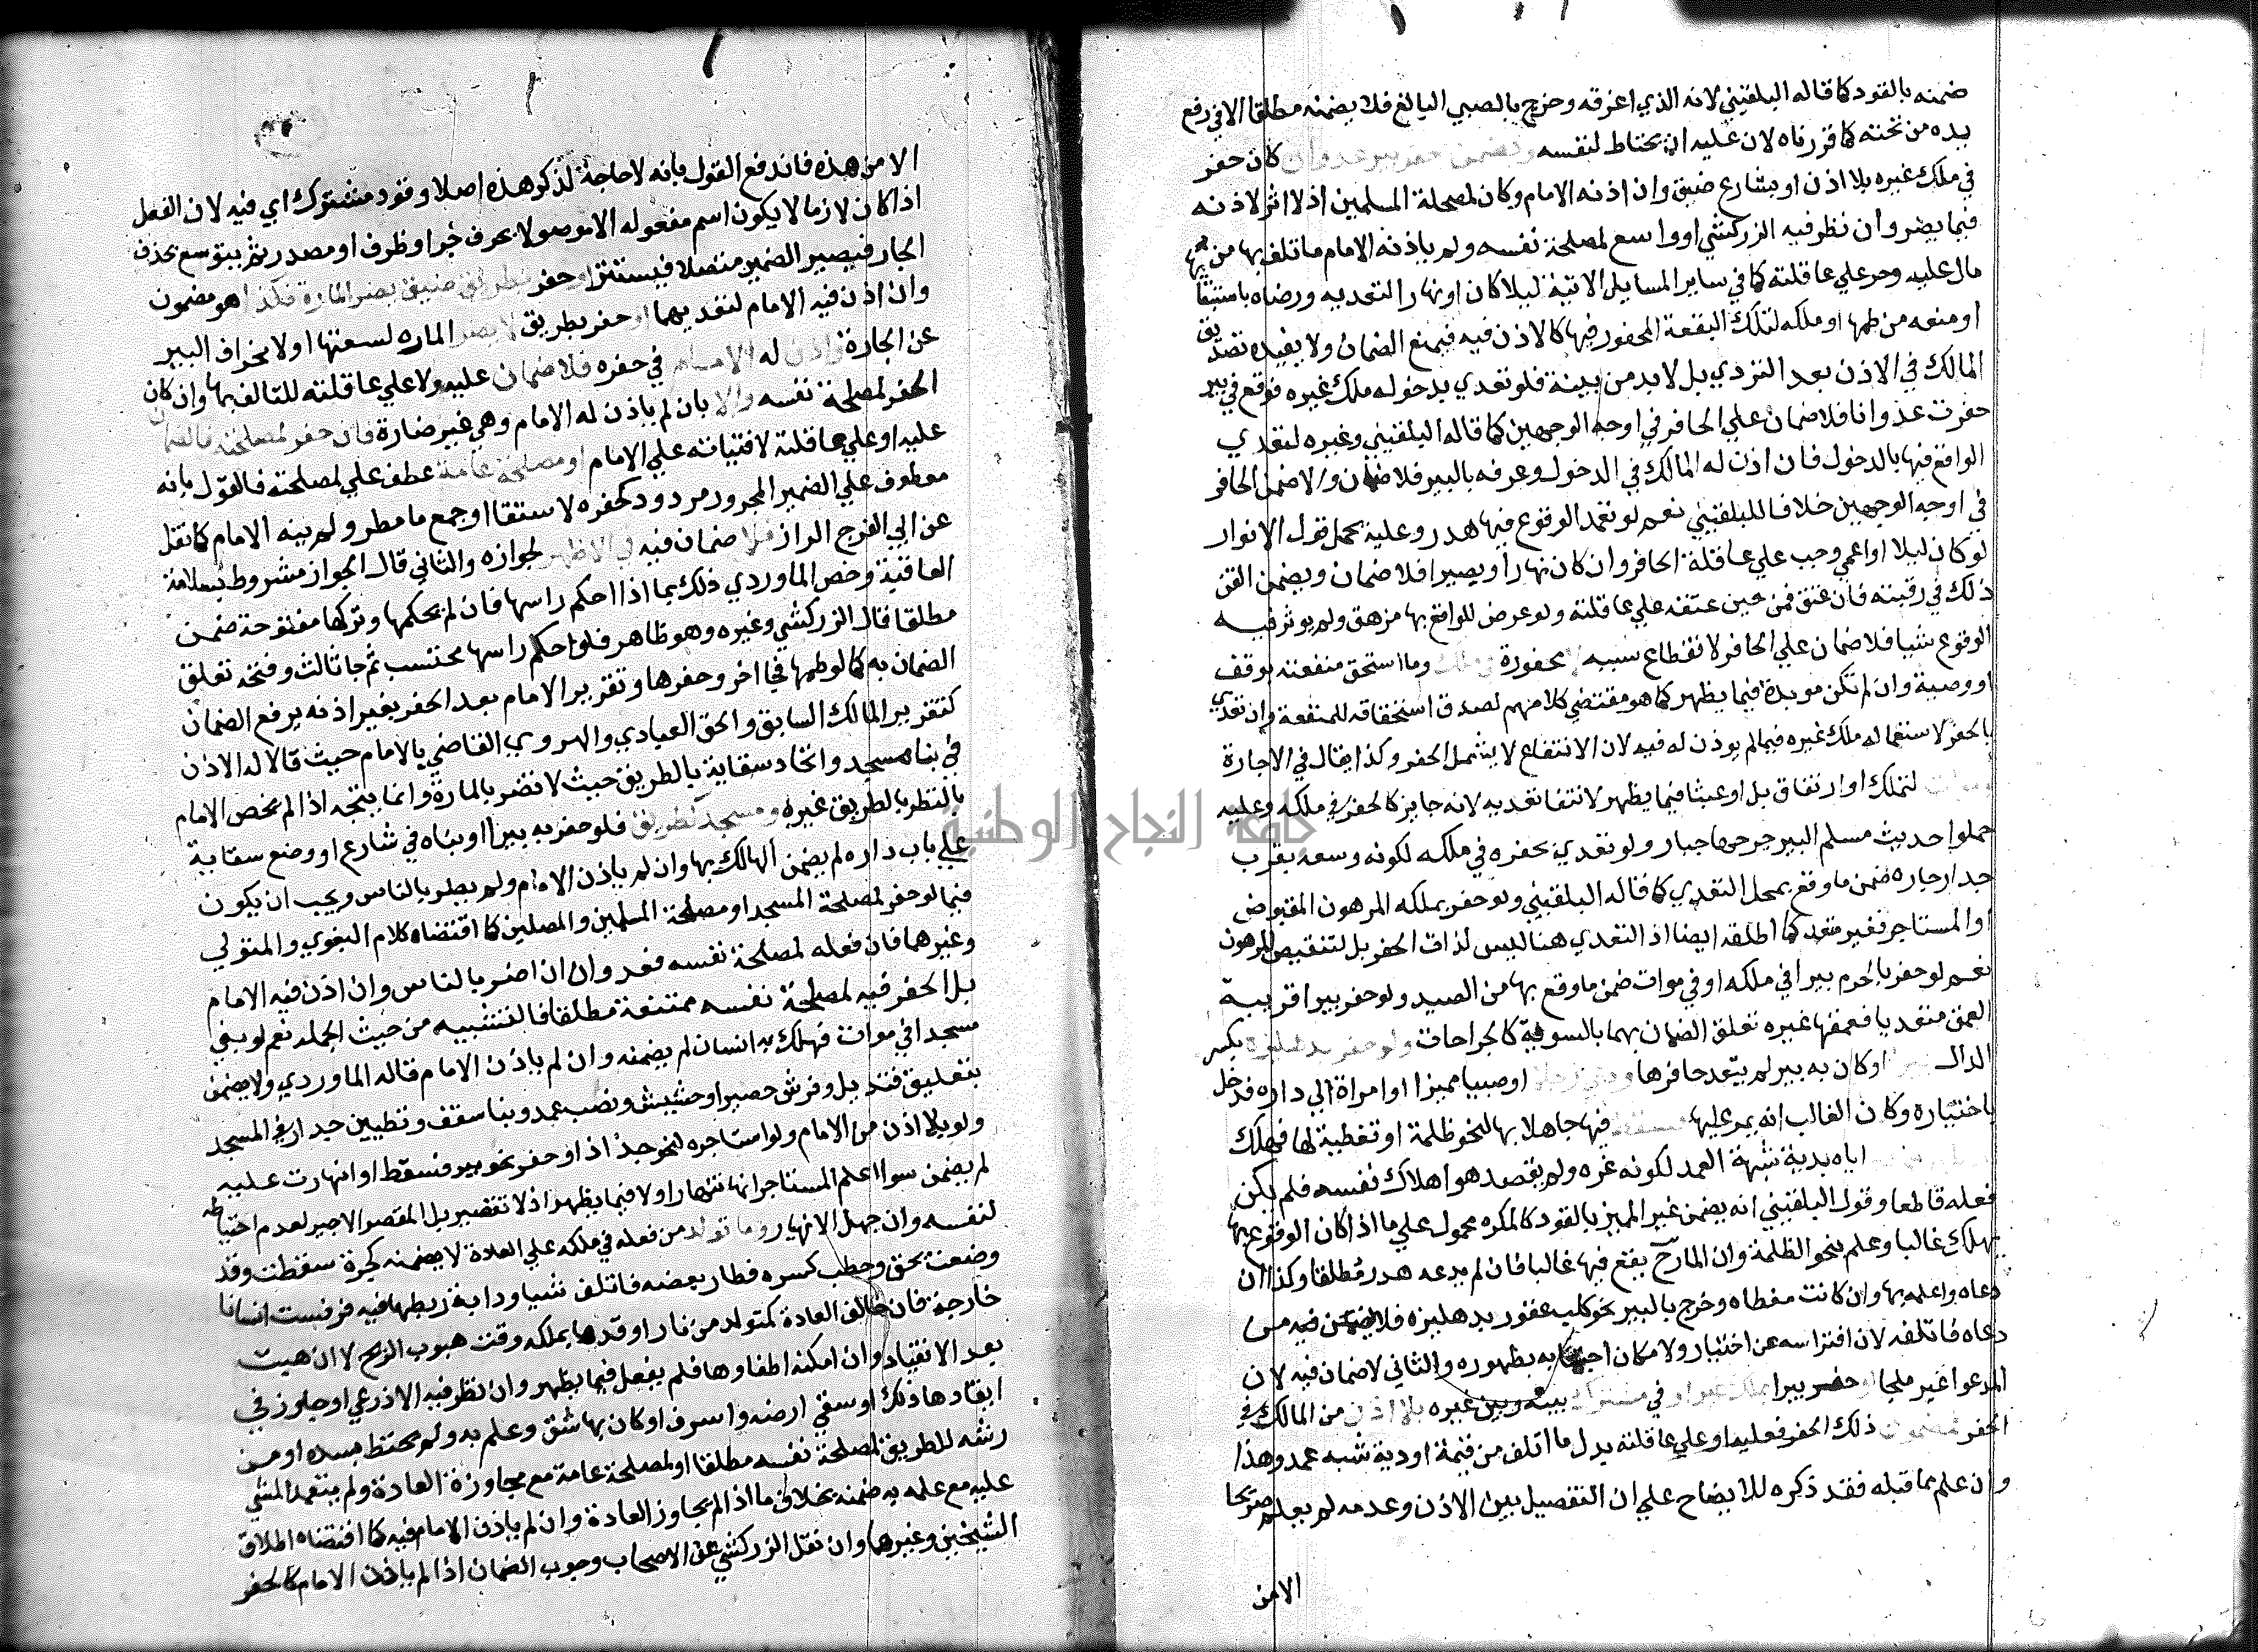 ضمنه بالقود كما قاله البلقيني لانه الذي اغرقه وخرج بالصبي البالغ فلا يضمنه مطلقا الا في رفع
يده من تحته كما قررناه لان عليه ان يحتاط لنفسه ويضمن حفر بير عدوان كان حفر
في ملك غيره بلا اذن او بشارع ضيق وان اذنه الامام وكان لمصلحة المسلمين اذ لا اثر لاذنه
فيما يضر وان نظر فيه الزركشي او واسع لمصلحة نفسه ولم ياذنه الامام ما تلف بها من
مال عليه وحر علي عاقلته كما في ساير المسايل الاتية ليلا كان او نهارا لتعديه ورضاه باستبقا
او منعه من طمها او ملكه لتلك البقعة المحفور فيها كالاذن فيه فيمنع الضمان ولا يفيده تصديق
المالك في الاذن بعد التردي بل لابد من بينة فلو تعدي بدخوله ملك غيره فوقع في بير
حفرت عدوانا فلا ضمان علي الحافر في اوجه الوجهين كما قاله البلقيني وغيره لتعدي
الواقع فيها بالدخول فان اذن له المالك في الدخول وعرفه بالبير فلا ضمان والا ضمن الحافر
في اوجه الوجهين خلافا للبلقيني نعم لو تعمد الوقوع فيها هدر وعليه يحمل قول الانوار
لو كان ليلا او اعمي وجب علي عاقلة الحافر وان كان نهارا وبصيرا فلا ضمان ويضمن القن
ذلك في رقبته فان عتق فمن حين عتقه علي عاقلته ولو عرض للواقع بها مزهق ولم يوثر فيه
الوقوع شيا فلا ضمان علي الحافر لانقطاع سببه لا محفورة في ملكه وما استحق منفعته بوقف
او وصية وان لم تكن موبدة فيما يظهر كما هو مقتضي كلامهم لصدق استحقاقه للمنفعة وان تعدي
بالحفر لاستعماله ملك غيره فيما لم يوذن له فيه لان الانتفاع لا يشمل الحفر وكذا يقال في الاجارة
وموات لتملك او ارتفاق بل او عبثا فيما يظهر لانتفا تعديه لانه جايز كالحفر في ملكه وعليه
حملوا حديث مسلم البير جرحها جبار ولو تعدي بحفره في ملكه لكونه وسعه بقرب
جدار جاره ضمن ما وقع بمحل التعدي كما قاله البلقيني ولو حفر بملكه المرهون المقبوض
او المستاجر فغير متعد كما اطلقه ايضا اذ التعدي هنا ليس لذات الحفر بل لتنقيص المرهون
نعم لو حفر بالحرم بيرا في ملكه او في موات ضمن ما وقع بها من الصيد ولو حفر بيرا قريبة
العمق متعديا فعمقها غيره تعلق الضمان بهما بالسوية كالجراحات ولو حفر بدهليزه بكسر
الدال بيرا او كان به بير لم يتعد حافرها ودعي رجلا او صبيا مميزا او امراة الي داره فدخل
باختياره وكان الغالب انه يمر عليها فسقط فيها جاهلا بها لنحو ظلمة او تغطية لها فهلك
اياه بدية شبهة العمد لكونه غره ولم يقصد هو اهلاك نفسه فلم يكن
فعله قاطعا وقول البلقيني انه يضمن غير المميز بالقود كالمكره محمول علي ما اذا كان الوقوع بها
يهلك غالبا وعلم بنحو الظلمة وان المار يقع فيها غالبا فان لم يدعه هدر مطلقا وكذا ان
دعاه واعلمه بها وان كانت مغطاه وخرج بالبير نحو كلب عقور بدهليزه فلا يضمن من
دعاه فاتلفه لان افتراسه عن اختيار ولامكان اجتنابه بظهوره والثاني لا ضمان فيه لان
المدعو غير ملجا او حفر بيرا بملك غيره او في مشترك بينه وبين غيره بلا اذن من المالك في
الحفر فمضمون ذلك الحفر فعليه او علي عاقلته بدل ما اتلف من قيمة او دية شبه عمد وهذا
وان علم مما قبله فقد ذكره للايضاح علي ان التفصيل بين الاذن وعدمه لم يعلم صريحا
الا من
الا من هذه فاندفع القول بانه لا حاجة لذكر هذه اصلا وقود مشترك اي فيه لان الفعل
اذا كان لازما لا يكون اسم مفعوله الا موصولا بحرف جر او ظرف او مصدر ثم يتوسع بحذف
الجار فيصير الضمير متصلا فيستتر او حفر بطريق ضيق يضر المارة فكذا هو مضمون
وان اذن فيه الامام لتعديهما او حفر بطريق لا يضر الماره لسعتها او لانحراف البير
عن الجارة واذن له الامام في حفره فلا ضمان عليه ولا علي عاقلته للتالف بها وان كان
الحفر لمصلحة نفسه والا بان لم ياذن له الامام وهي غير ضارة فان حفر لمصلحته فالضمان
عليه او علي عاقلته لافتياته علي الامام او مصلحة عامة عطف علي لمصلحته فالقول بانه
معطوف علي الضمير المجرور مردود كحفره لاستقا او جمع ما مطر ولم ينه الامام كما نقل
عن ابي الفرج الراز فلا ضمان فيه في الاظهر لجوازه والثاني قال الجواز مشروط بسلامة
العاقبة وخص الماوردي ذلك بما اذا احكم راسها فان لم يحكمها وتركها مفتوحة ضمن
مطلقا قال الزركشي وغيره وهو ظاهر فلو احكم راسها محتسب ثم جا ثالث وفتحه تعلق
الضمان به كما لو طمها فجا اخر وحفرها وتقرير الامام بعد الحفر بغير اذنه يرفع الضمان
كتقرير المالك السابق والحق العبادي والهروي القاضي بالامام حيث قالا له الاذن
في بنا مسجد واتخاذ سقاية بالطريق حيث لا تضر بالمارة وانما يتجه اذا لم يخص الامام
بالنظر بالطريق غيره ومسجد كطريق فلو حفر به بيرا او بناه في شارع او وضع سقاية
علي باب داره لم يضمن الهالك بها وان لم ياذن الامام ولم يضر بالناس ويجب ان يكون
فيما لو حفر لمصلحة المسجد او مصلحة المسلمين والمصلين كما اقتضاه كلام البغوي والمتولي
وغيرهما فان فعله لمصلحة نفسه فعدوان ان اضر بالناس وان اذن فيه الامام
بل الحفر فيه لمصلحة نفسه ممتنعة مطلقا فالتشبيه من حيث الجملة نعم لو بني
مسجدا في موات فهلك به انسان لم يضمنه وان لم ياذن الامام قاله الماوردي ولا يضمن
بتعليق قنديل وفرش حصير او حشيش ونصب عمد وبنا سقف وتطيين جدار في المسجد
ولو بلا اذن من الامام ولو استاجره لنحو جذاذ او حفر نحو بير فسقط او انهارت عليه
لم يضمن سوا اعلم المستاجر انها تنهار اولا فيما يظهر اذ لا تقصير بل المقصر الاجير لعدم احتياطه
لنفسه وان جهل الانهيار وما تولد من فعله في ملكه علي العادة لا يضمنه كجرة سقطت وقد
وضعت بحق وحطب كسره فطار بعضه فاتلف شيا ودابة ربطها فيه فرفست انسانا
خارجه فان خالف العادة كمتولد من نار اوقدها بملكه وقت هبوب الريح لا ان هبت
بعد الايقاد وان امكنه اطفاوها فلم يفعل فيما يظهر وان نظر فيه الاذرعي او جاوز في
ايقادها ذلك او سقي ارضه واسرف او كان بها شق وعلم به ولم يحتط بسده او من
رشه للطريق لمصلحة نفسه مطلقا او لمصلحة عامة مع مجاوزة العادة ولم يتعمد المشي
عليه مع علمه به ضمنه بخلاف ما اذا لم يجاوز العادة وان لم ياذن الامام فيه كما اقتضاه اطلاق
الشيخين وغيرهما وان نقل الزركشي عن الاصحاب وجوب الضمان اذا لم ياذن الامام كالحفر
جامعة النجاح الوطنية